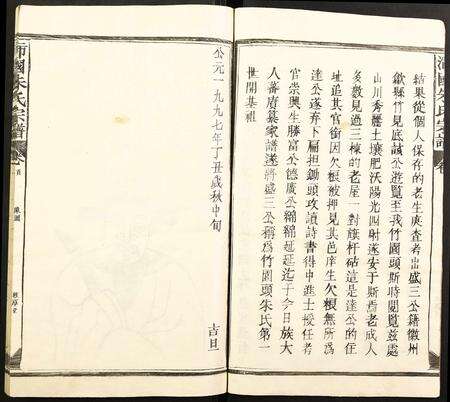 結果從個人保存的老生庚查考出盛三公籍徽州
歙縣竹見底誠公遊覽至我竹園頭斯時閱覽兹處
山川秀麗土壤肥沃陽光四射遂安于斯焉老成人
多數見過三棟的老屋一對旗杆砧這是達公的住
址追其官銜因欠糧被押見其芭庠生欠糧無所爲
達公遂弃下扁担鋤頭攻讀詩書得中進士授任考
官崇興生勝富公德廣公綿綿延延迄于今日族大
人蕃庚纂家譜遂將盛三公稱爲竹園頭朱氏第一
世開基祖
公元一九九七年丁丑歲秋中旬
吉旦
沛國朱氏宗譜
卷